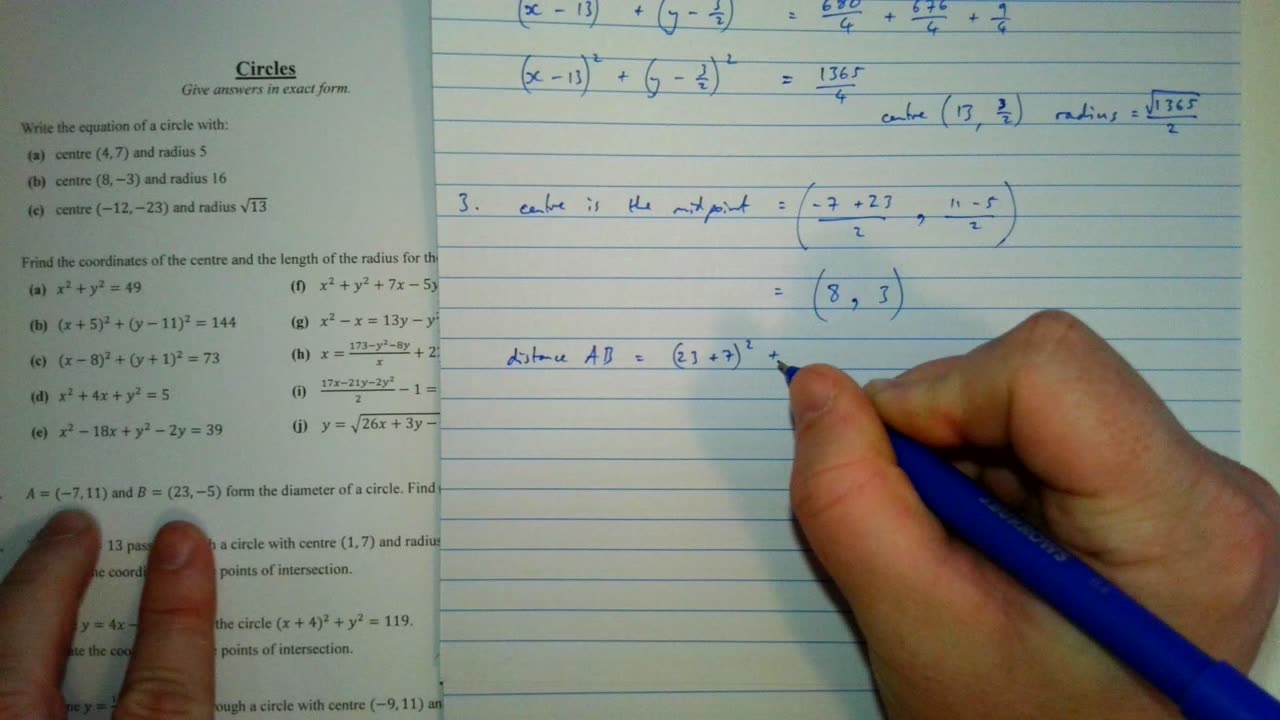 Circles
Give answers in exact form.
Write the equation of a circle with:
(a) centre (4, 7) and radius 5
(b) centre (8, −3) and radius 16
(c) centre (−12, −23) and radius √13
Frind the coordinates of the centre and the length of the radius for th
(a) x² + y² = 49
(b) (x + 5)² + (y − 11)² = 144
(c) (x − 8)² + (y + 1)² = 73
(d) x² + 4x + y² = 5
(e) x² − 18x + y² − 2y = 39
(f) x² + y² + 7x − 5y
(g) x² − x = 13y − y
(h) x = (173−y²−8y)/x + 2
(i) (17x−21y−2y²)/2 − 1 =
(j) y = √26x + 3y −
A = (−7, 11) and B = (23, −5) form the diameter of a circle. Find
13 pass a circle with centre (1, 7) and radius
points of intersection.
y = 4x − the circle (x + 4)² + y² = 119.
points of intersection.
y = ough a circle with centre (−9, 11) an
(x − 13) + (y − 3/2) = 680/4 + 676/4 + 9/4
(x − 13)² + (y − 3/2)² = 1365/4
centre (13, 3/2) radius = √1365/2
3. centre is the midpoint = (−7 + 23/2, 11 − 5/2)
= (8, 3)
distance AB = (23 + 7)² +